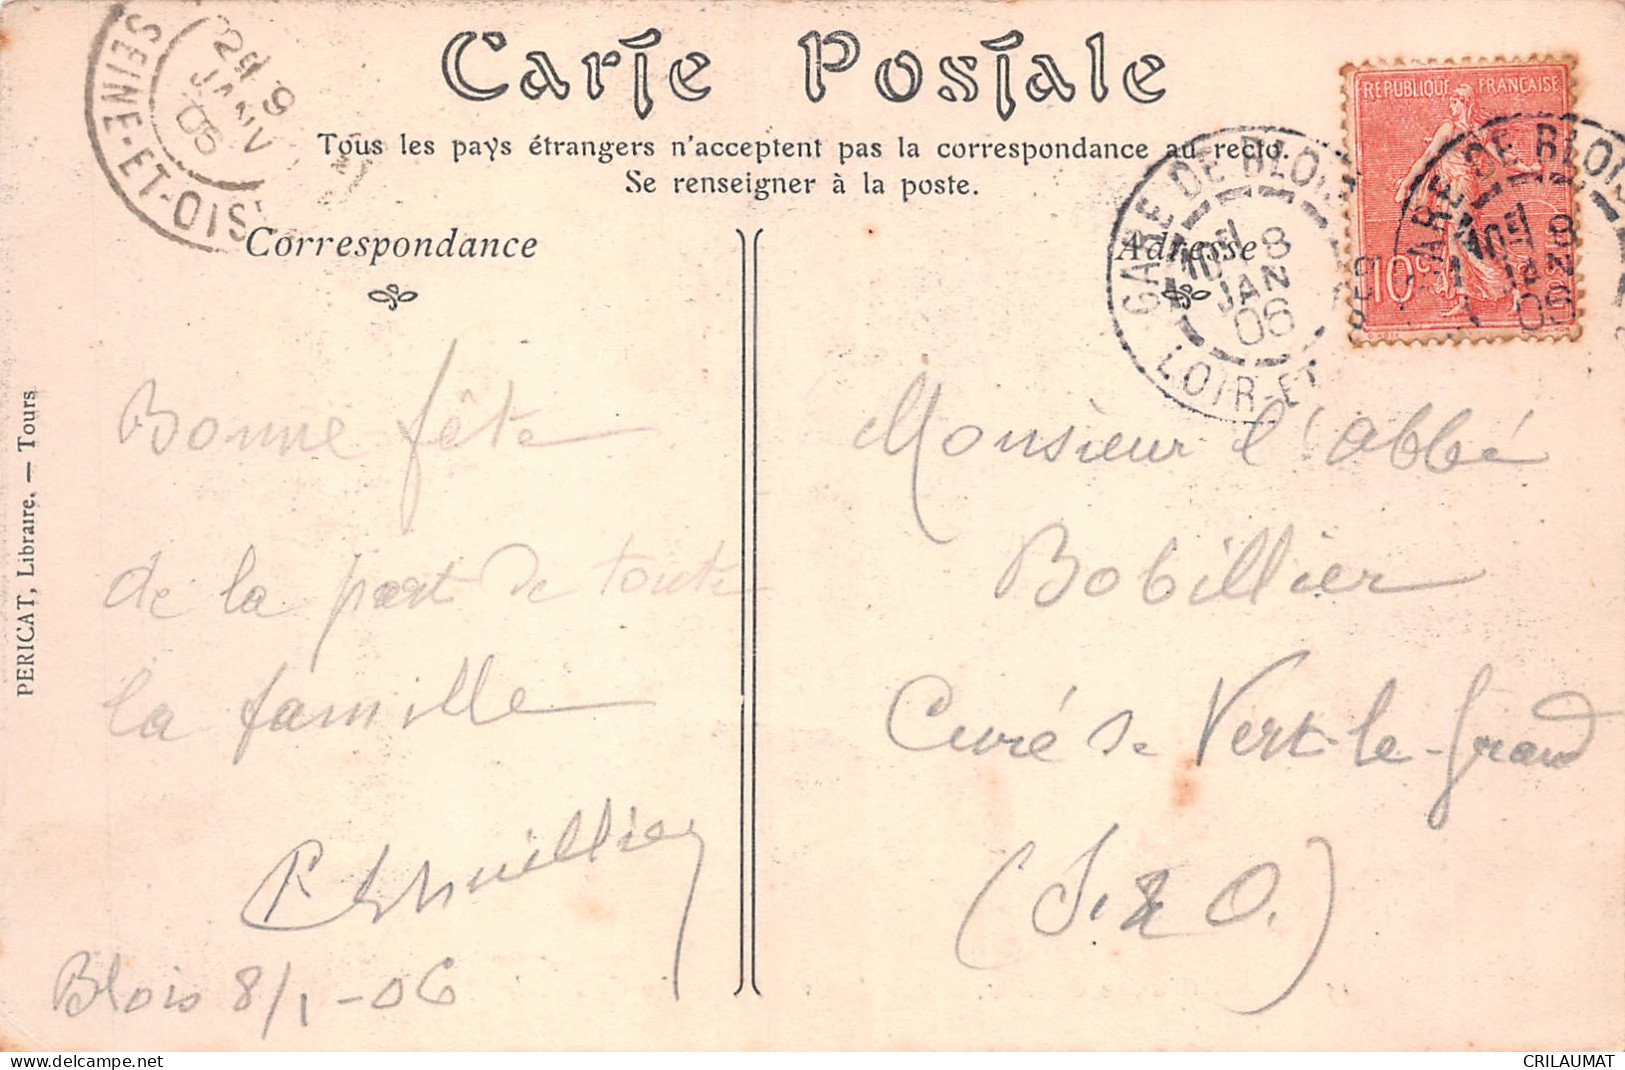 Carte Postale
Tous les pays étrangers n'acceptent pas la correspondance au recto.
Se renseigner à la poste.
SEINE-ET-OIS
2e 9
JANV
06
Correspondance
Adresse
GARE DE BLOIS
8
JAN
06
LOIR-ET
REPUBLIQUE FRANÇAISE
10c
GARE DE BLOIS
8
JAN
06
Bonne fête
de la part de toute
la famille
Blois 8/1-06
Monsieur l'abbé
Bobillier
Curé de Vert-le-Grand
(S. & O.)
PERICAT, Libraire. — Tours
CRILAUMAT